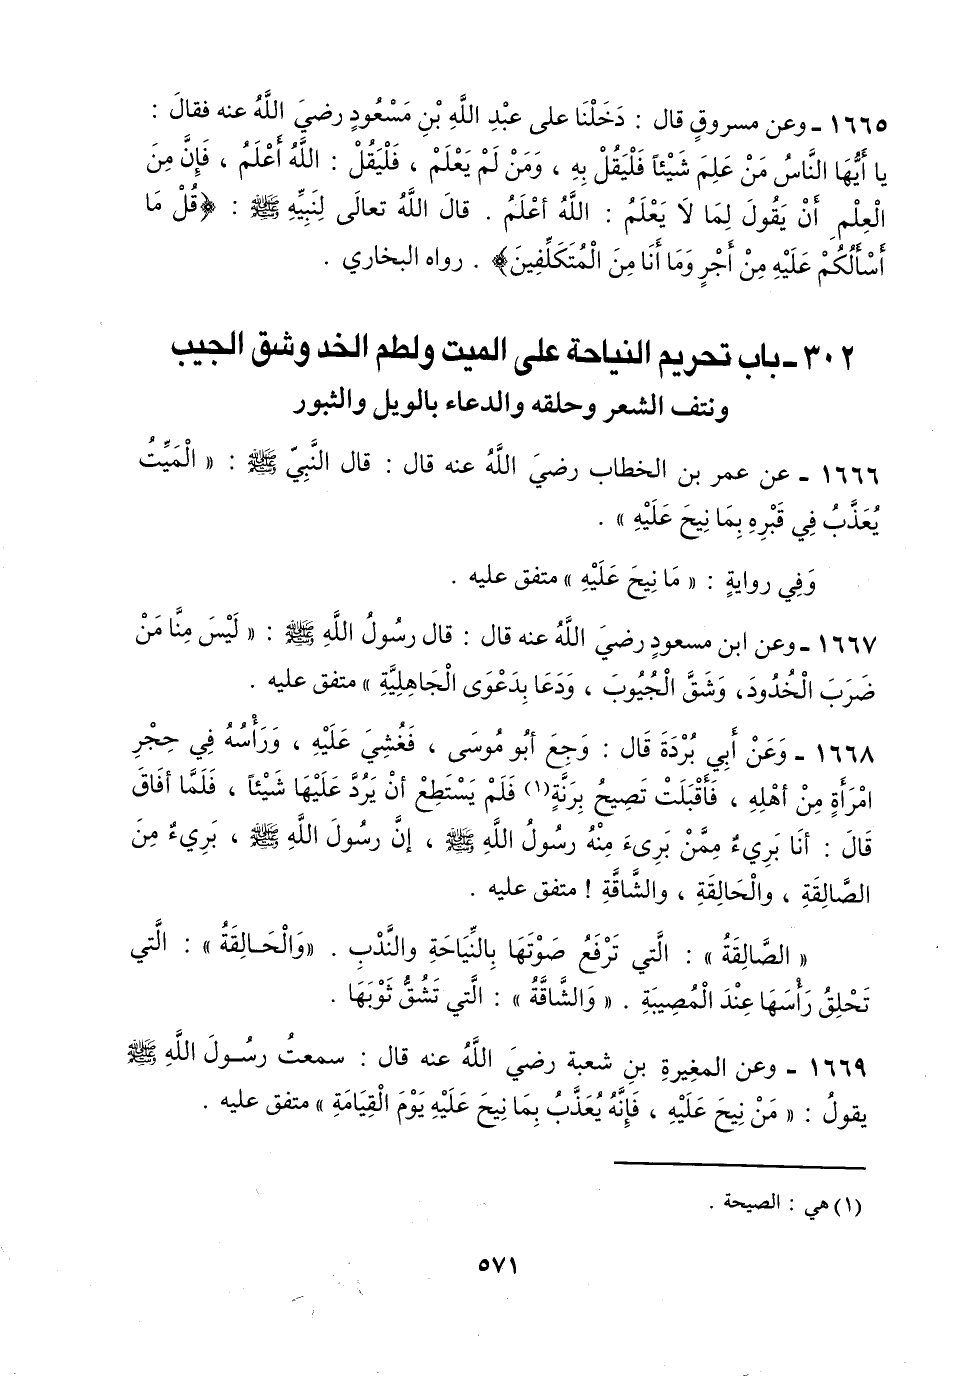 ١٦٦٥ ـ وعن مسروقٍ قال : دَخَلْنَا على عبْدِ اللَّهِ بْنِ مَسْعُودٍ رضيَ اللَّهُ عنه فقالَ :
يا أَيُّهَا النَّاسُ مَنْ عَلِمَ شَيْئاً فَلْيَقُلْ بِهِ ، وَمَنْ لَمْ يَعْلَمْ ، فَلْيَقُلْ : اللَّهُ أَعْلَمُ ، فَإِنَّ مِنَ
الْعِلْمِ أَنْ يَقُولَ لِمَا لَا يَعْلَمُ : اللَّهُ أعْلَمُ . قالَ اللَّهُ تعالَى لِنَبِيِّهِ ﷺ : ﴿قُلْ مَا
أَسْأَلُكُمْ عَلَيْهِ مِنْ أَجْرٍ وَمَا أَنَا مِنَ الْمُتَكَلِّفِينَ﴾ . رواه البخاري .
٣٠٢ ـ باب تحريم النياحة على الميت ولطم الخد وشق الجيب
ونتف الشعر وحلقه والدعاء بالويل والثبور
١٦٦٦ ـ عن عمر بن الخطاب رضيَ اللَّهُ عنه قال : قال النَّبِيّ ﷺ : « الْمَيِّتُ
يُعَذَّبُ فِي قَبْرِهِ بِمَا نِيحَ عَلَيْهِ » .
وَفِي روايةٍ : « مَا نِيحَ عَلَيْهِ » متفق عليه .
١٦٦٧ ـ وعن ابن مسعودٍ رضيَ اللَّهُ عنه قال : قال رسُولُ اللَّهِ ﷺ : « لَيْسَ مِنَّا مَنْ
ضَرَبَ الْخُدُودَ، وَشَقَّ الْجُيُوبَ ، وَدَعَا بِدَعْوَى الْجَاهِلِيَّةِ » متفق عليه .
١٦٦٨ ـ وَعَنْ أَبِي بُرْدَةَ قَال : وَجِعَ أبُو مُوسَى ، فَغُشِيَ عَلَيْهِ ، وَرَأْسُهُ فِي حِجْرِ
امْرَأَةٍ مِنْ أهْلِهِ ، فَأَقْبَلَتْ تَصِيحُ بِرَنَّةٍ(١) فَلَمْ يَسْتَطِعْ أنْ يَرُدَّ عَلَيْهَا شَيْئاً ، فَلَمَّا أفَاقَ
قَالَ : أنَا بَرِيءٌ مِمَّنْ بَرِىءَ مِنْهُ رسُولُ اللَّهِ ﷺ ، إنَّ رسُولَ اللَّهِ ﷺ ، بَرِيءٌ مِنَ
الصَّالِقَةِ ، والْحَالِقَةِ ، والشَّاقَّةِ ! متفق عليه .
« الصَّالِقَةُ » : الَّتي تَرْفَعُ صَوْتَهَا بِالنِّيَاحَةِ والنَّدْبِ . «وَالْحَـالِقَةُ » : الَّتي
تَحْلِقُ رَأْسَهَا عِنْدَ الْمُصِيبَةِ . « وَالشَّاقَّةُ » : الَّتي تَشُقُّ ثَوْبَهَا .
١٦٦٩ ـ وعن المغيرةِ بنِ شعبة رضيَ اللَّهُ عنه قال : سمعتُ رسُـولَ اللَّهِ ﷺ
يقولُ : « مَنْ نِيحَ عَلَيْهِ ، فَإِنَّهُ يُعَذَّبُ بِمَا نِيحَ عَلَيْهِ يَوْمَ الْقِيَامَةِ » متفق عليه .
(١) هي : الصيحة .
٥٧١